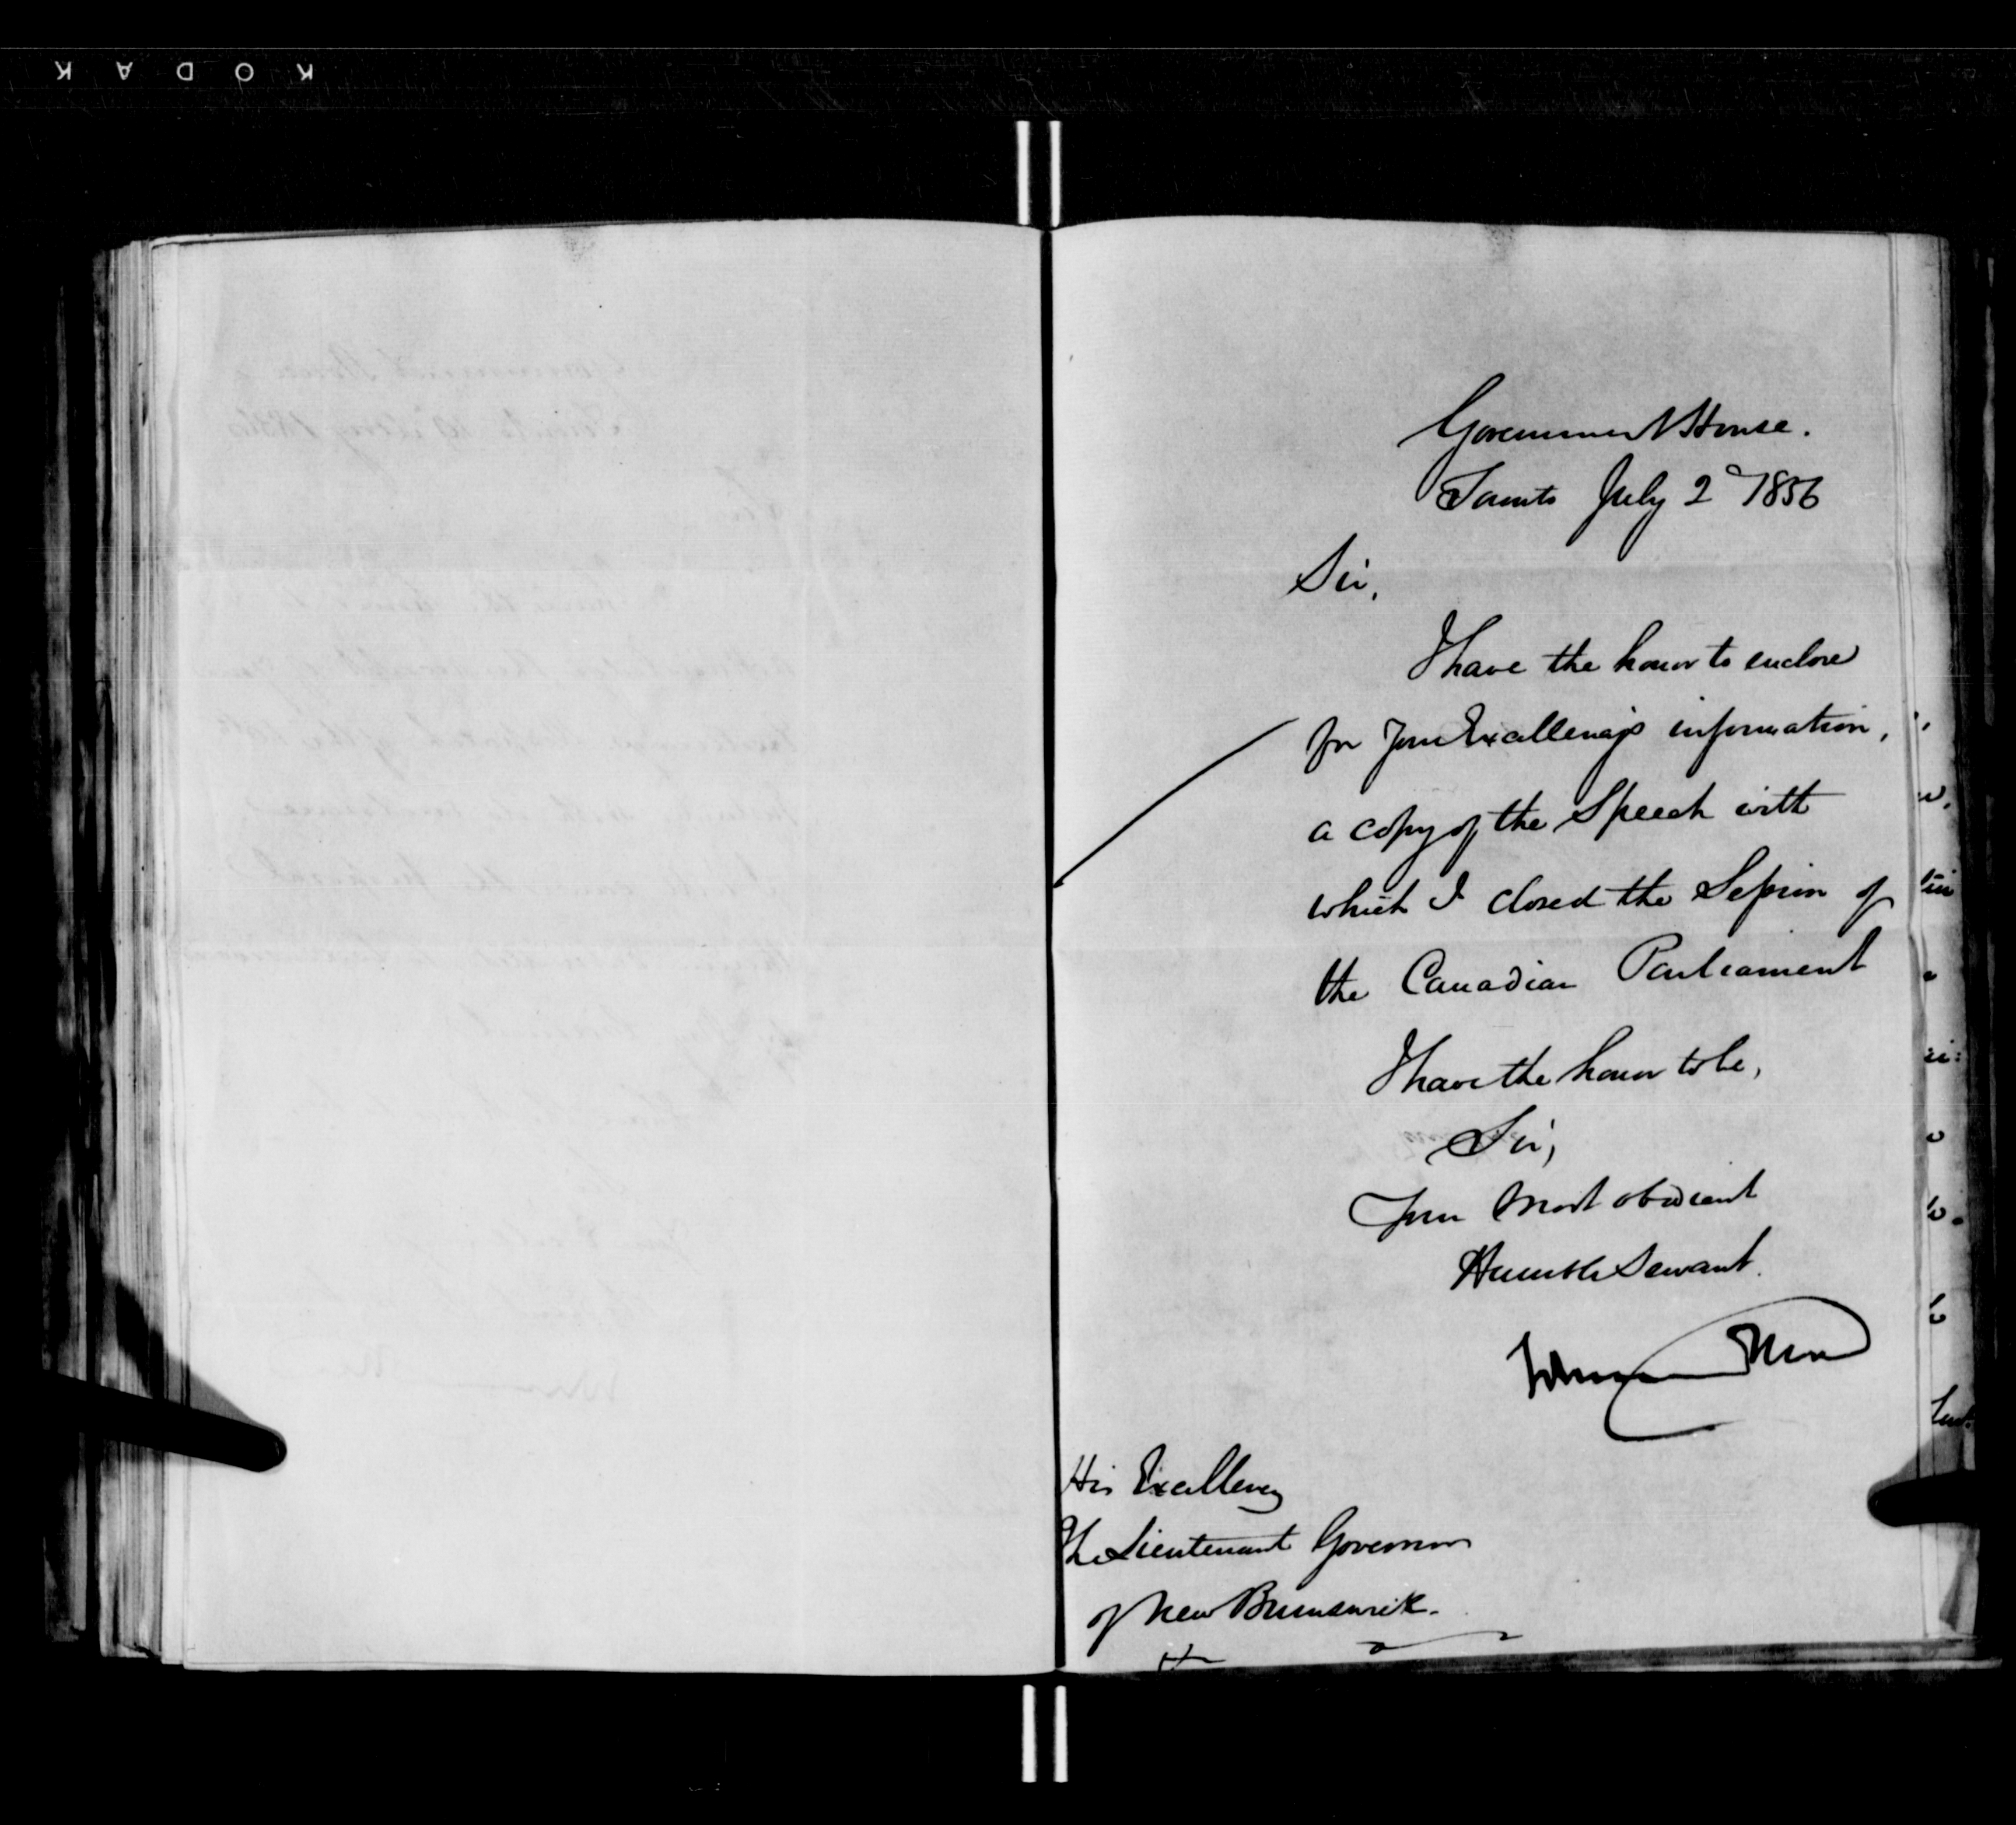 KODAK
Government House.
Toronto July 2d 1856
Sir,
I have the honor to enclose
for Your Excellency's information,
a copy of the Speech with
which I closed the Session of
the Canadian Parliament
I have the honor to be,
Sir,
Your Most obedient
Humble Servant.
His Excellency
The Lieutenant Governor
of New Brunswick.